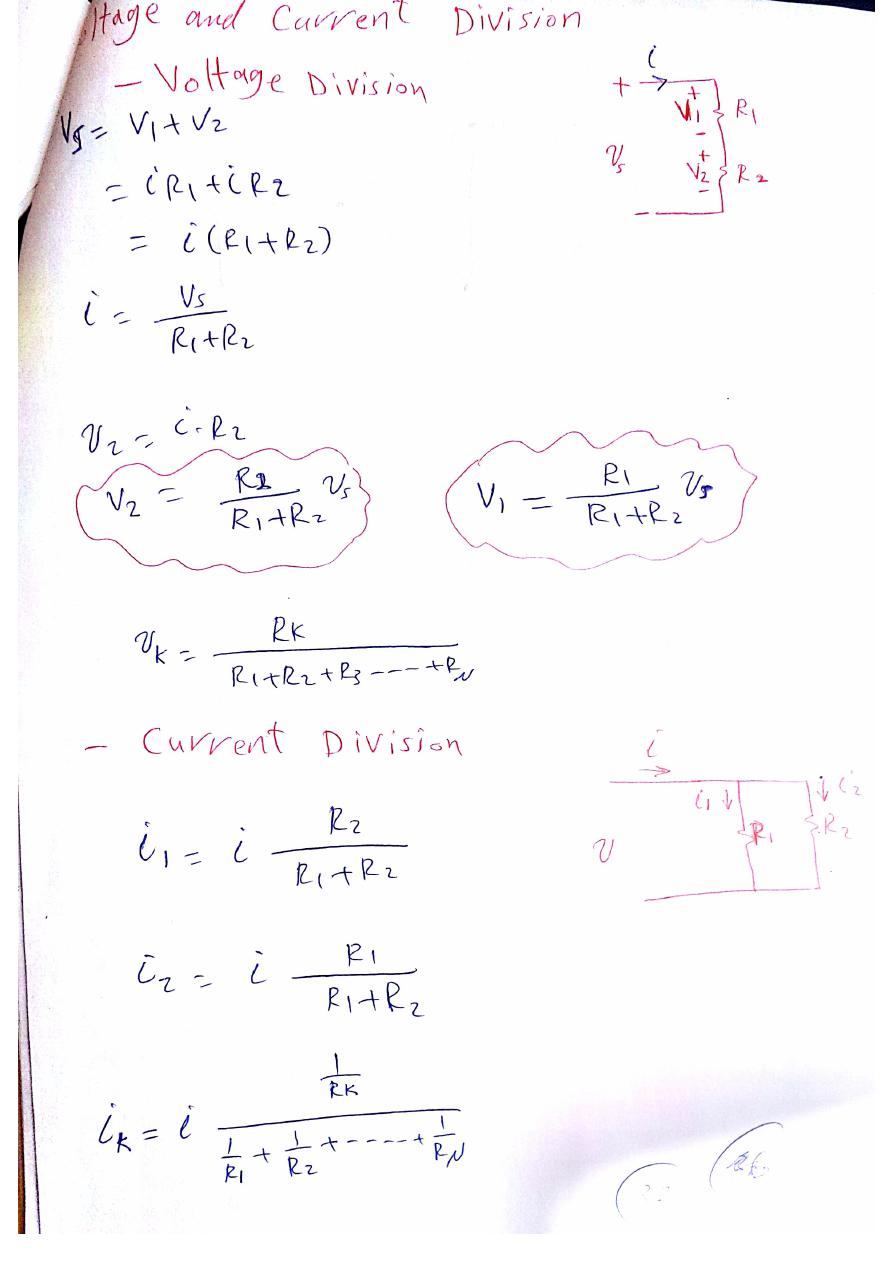 ltage and Current Division
- Voltage Division
Vs = V1 + V2
= iR1 + iR2
= i(R1+R2)
i = Vs / (R1+R2)
+ i
V1 + - R1
Vs
V2 + - R2
-
V2 = i·R2
V2 = R2 / (R1+R2) Vs
V1 = R1 / (R1+R2) Vs
VK = RK / (R1+R2+R3 ----- +RN)
- Current Division
i
i1 R1
i2 R2
V
i1 = i R2 / (R1+R2)
i2 = i R1 / (R1+R2)
iK = i (1/RK) / (1/R1 + 1/R2 + ----- + 1/RN)